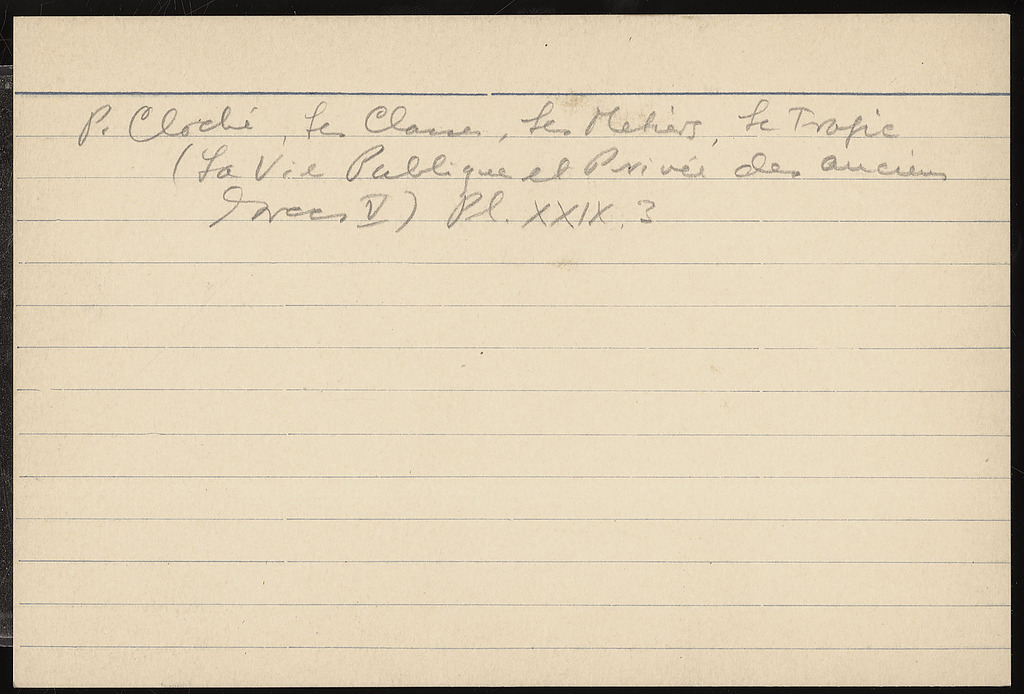 P. Cloché, Les Classes, Les Metiers, Le Trafic
(La Vie Publique et Privée des anciens
Grecs V) Pl. XXIX, 3